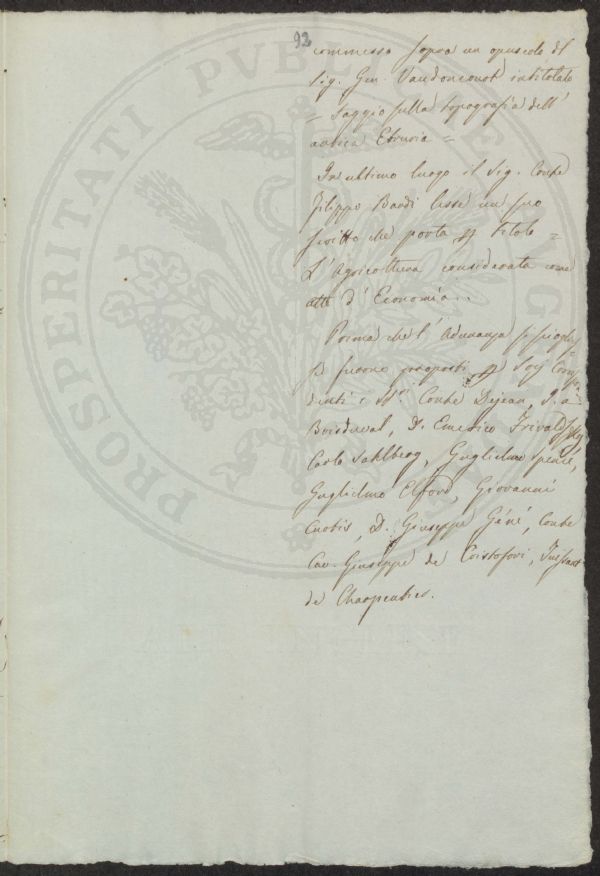 93
commesso sopra un opuscolo del
Sig. Gen. Vaudoncourt intitolato
= Saggio sulla topografia dell'
antica Etruria =
In ultimo luogo il Sig. Conte
Filippo Bardi lesse un suo
scritto che porta p titolo =
L'Agricoltura considerata come
arte d'Economia.
Prima che l'Adunanza si sciogles=
se furono proposti p Socj Corrispon
denti i SS.ri Conte Dejean, D.
Boisduval, D. Emerico Frivaldszky
Carlo Sahlberg, Guglielmo Spence,
Guglielmo Elford, Giovanni
Curtis, D. Giuseppe Géné, Conte
Cav. Giuseppe de Cristofori, Tussant
de Charpentier.
PROSPERITATI PVBLICAE AVGENDAE